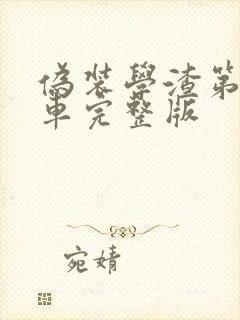 偽裝學渣第
車完整版
宛婧